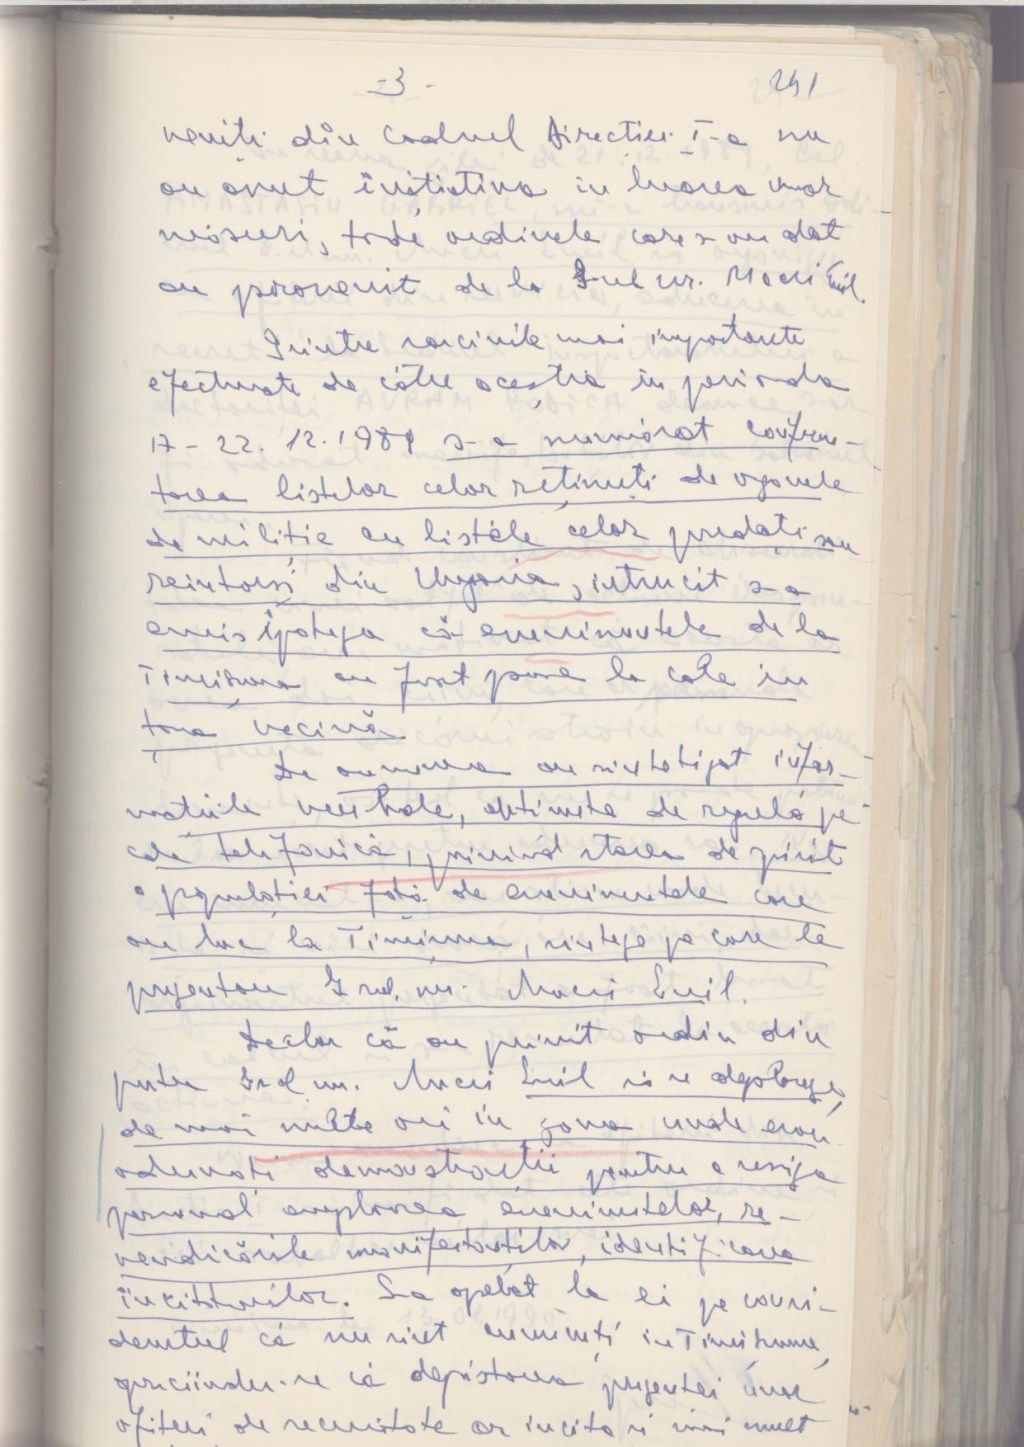 -3-
241
veniți din cadrul Direcției I-a nu
au avut inițiativa in luarea unor
măsuri, toate ordinele care s-au dat
au provenit de la Gral. mr. Macri Emil.
Printre sarcinile mai importante
efectuate de către aceștia în perioada
17-22.12.1989 s-a numărat confrun-
tarea listelor celor reținuți de organele
de miliție cu listele celor predați sau
reintorși din Ungaria, intrucit s-a
emis ipoteza că evenimentele de la
Timișoara au fost puse la cale in
țara vecină
De asemenea au sintetizat infor-
mațiile verbale, obținute de regulă pe
cale telefonică, privind starea de spirit
a populației față de evenimentele care
au loc la Timișoara, sinteze pe care le
prezentau Gral. mr. Macri Emil.
Declar că au primit ordin din
partea Gral mr. Macri Emil să se deplaseze,
de mai multe ori in zona unde erau
adunați demonstranții pentru a sesiza
personal amploarea evenimentelor, re-
vendicările manifestanților, identificarea
incitatorilor. S-a apelat la ei pe consi-
derentul că nu sint cunoscuți in Timișoara,
apreciindu-se că depistarea prezenței unor
ofițeri de securitate ar incita și mai mult